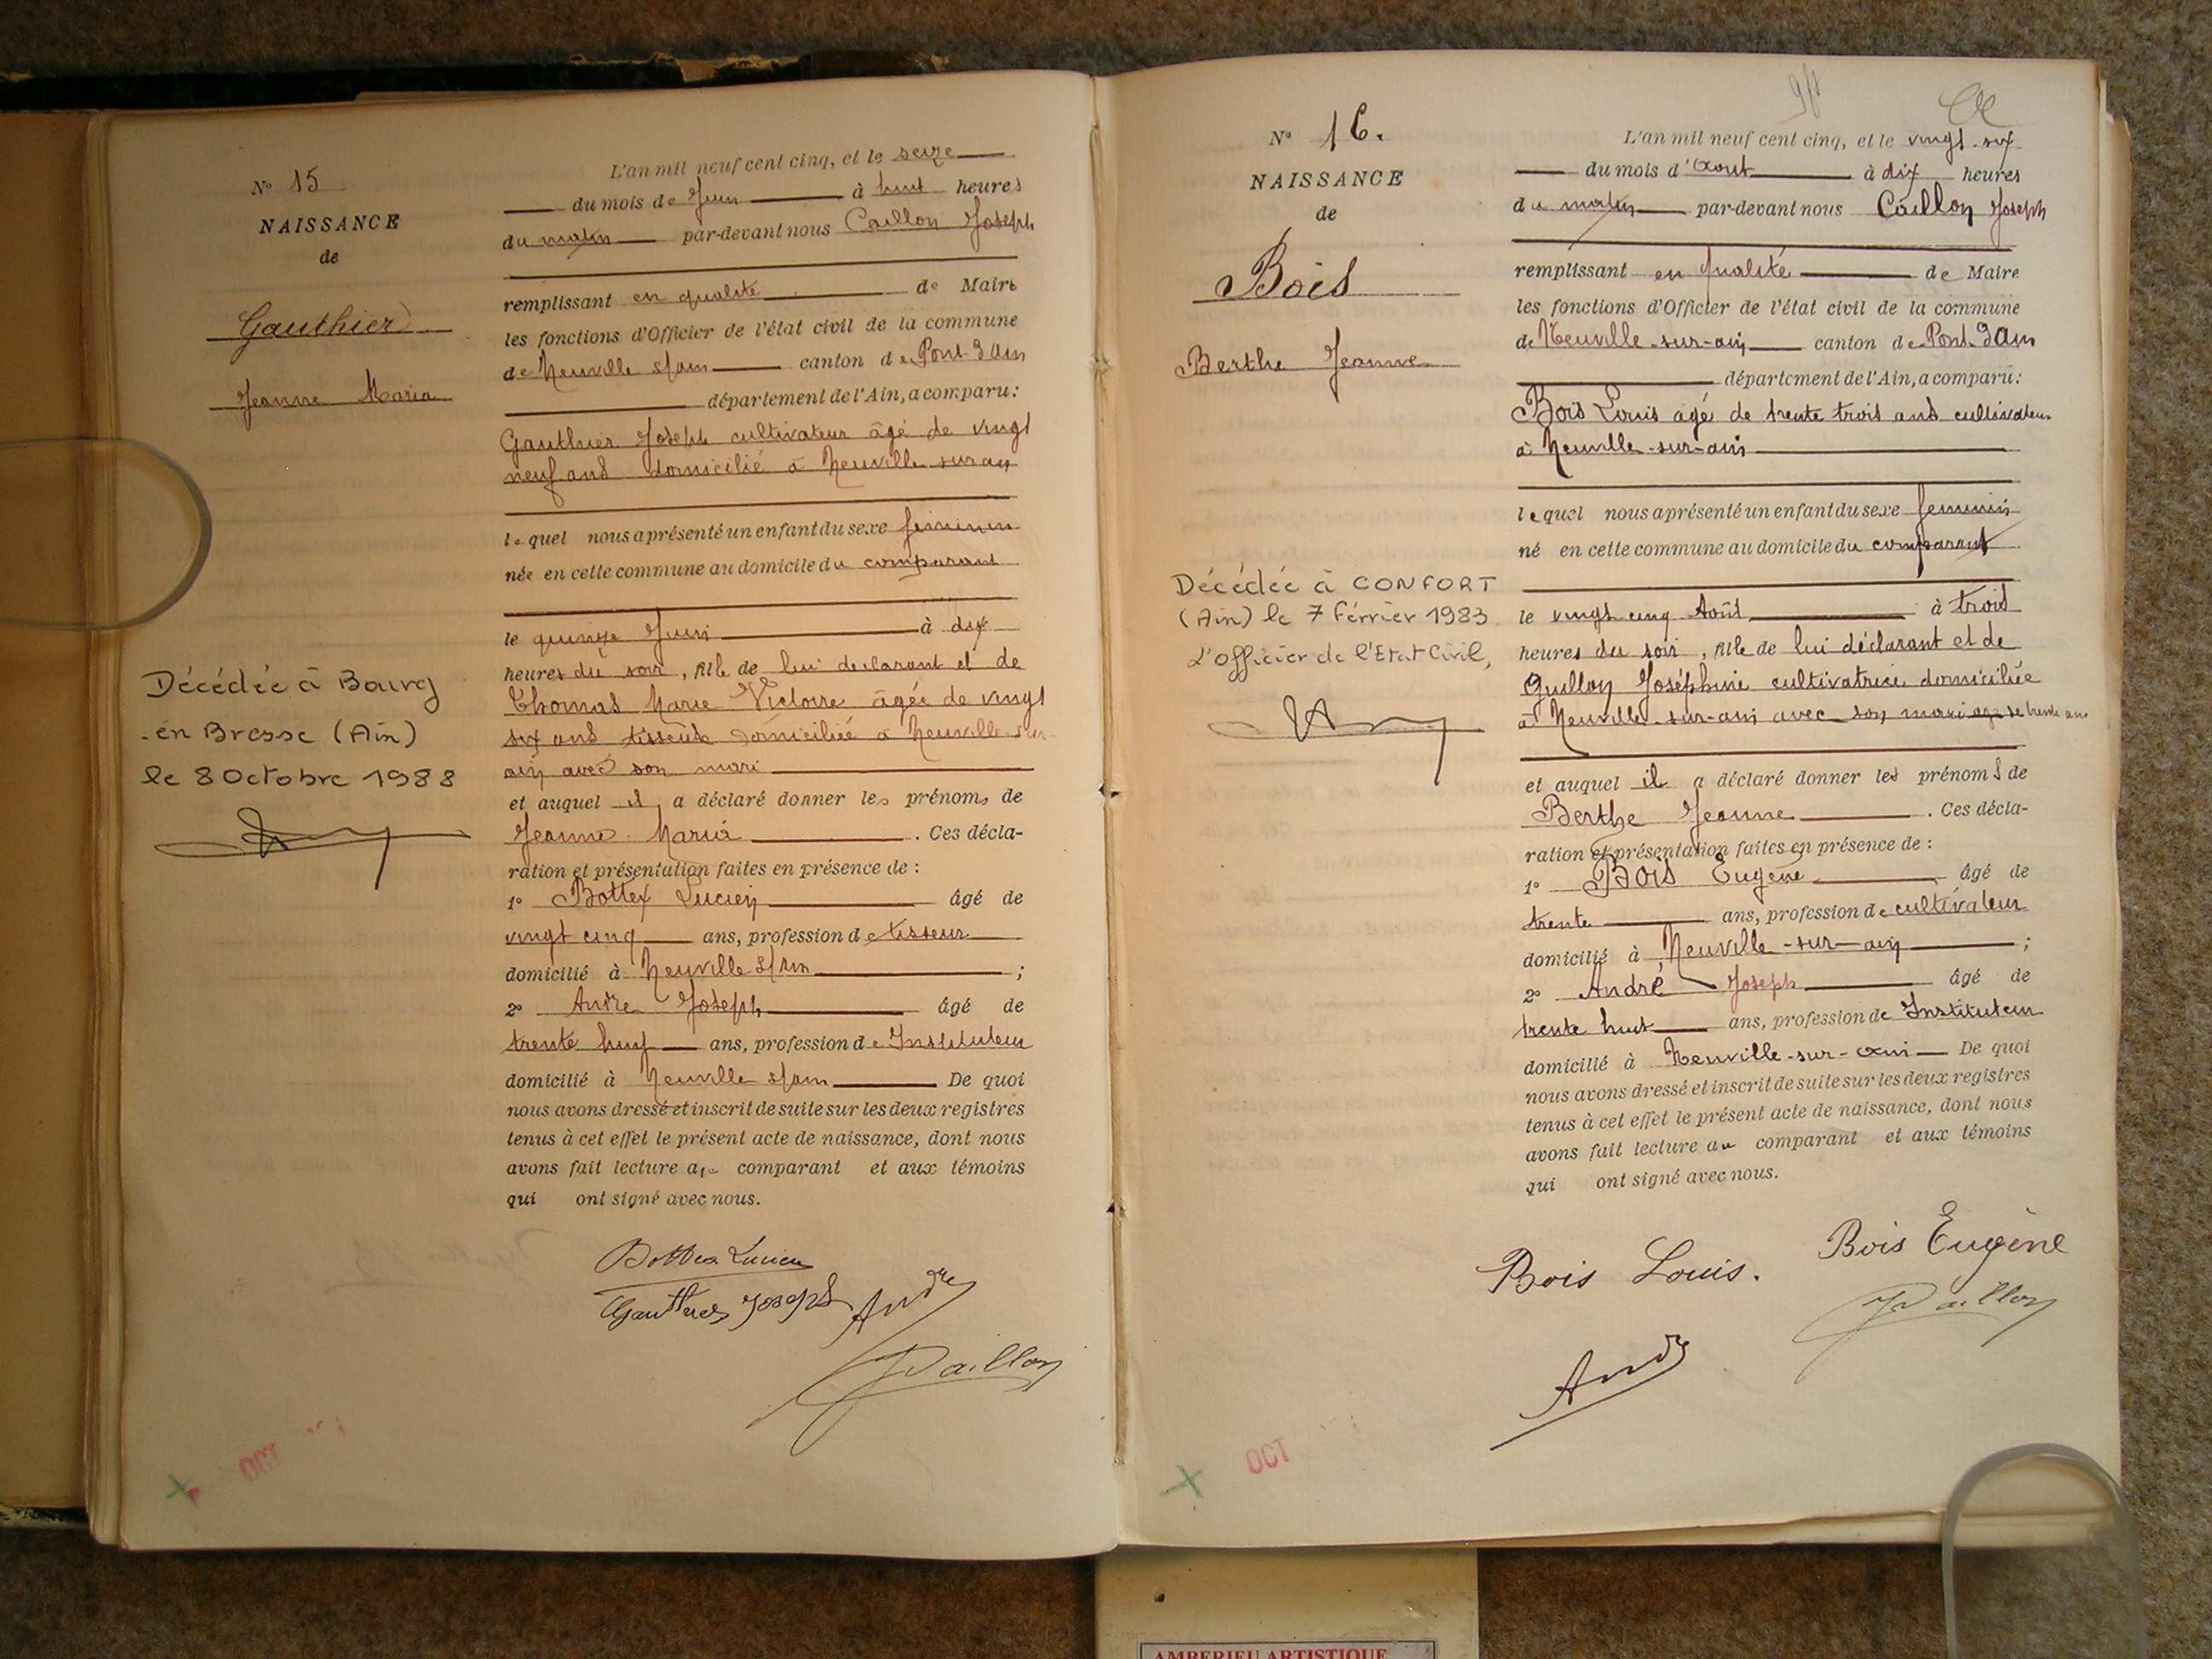 N° 15
NAISSANCE
de
Gauthier
Jeanne Maria
Décédée à Bourg
en Bresse (Ain)
le 8 Octobre 1988
L'an mil neuf cent cinq, et le seize
du mois de Juin à huit heures
du matin par-devant nous Caillon Joseph
remplissant en qualité de Maire
les fonctions d'Officier de l'état civil de la commune
de Neuville s/ain canton de Pont d'ain
département de l'Ain, a comparu:
Gauthier Joseph cultivateur âgé de vingt
neuf ans domicilié à Neuville sur ain
lequel nous a présenté un enfant du sexe feminin
née en cette commune au domicile du comparant
le quinze Juin à dix
heures du soir, fille de lui declarant et de
Thomas Marie Victoire âgée de vingt
six ans tisseuse domiciliée à Neuville sur
ain avec son mari
et auquel il a déclaré donner les prénoms de
Jeanne Maria. Ces décla-
ration et présentation faites en présence de :
1° Bottex Lucien âgé de
vingt cinq ans, profession de tisseur
domicilié à Neuville s/ain ;
2° André Joseph âgé de
trente huit ans, profession de Instituteur
domicilié à Neuville s/ain De quoi
nous avons dressé et inscrit de suite sur les deux registres
tenus à cet effet le présent acte de naissance, dont nous
avons fait lecture au comparant et aux témoins
qui ont signé avec nous.
Bottex Lucien
Gauthier Joseph André
Caillon
OCT
N° 16.
NAISSANCE
de
Bois
Berthe Jeanne
Décédée à CONFORT
(Ain) le 7 Février 1983.
L'officier de l'Etat Civil,
L'an mil neuf cent cinq, et le vingt-six
du mois d'Aout à dix heures
du matin par-devant nous Caillon Joseph
remplissant en qualité de Maire
les fonctions d'Officier de l'état civil de la commune
de Neuville-sur-ain canton de Pont-d'Ain
département de l'Ain, a comparu:
Bois Louis âgé de trente trois ans cultivateur
à Neuville-sur-ain
lequel nous a présenté un enfant du sexe feminin
né en cette commune au domicile du comparant
le vingt cinq Août à trois
heures du soir, fille de lui déclarant et de
Guillon Joséphine cultivatrice domiciliée
à Neuville-sur-ain avec son mari agée de trente ans
et auquel il a déclaré donner les prénoms de
Berthe Jeanne. Ces décla-
ration et présentation faites en présence de :
1° Bois Eugène âgé de
trente ans, profession de cultivateur
domicilié à Neuville-sur-ain ;
2° André Joseph âgé de
trente huit ans, profession de Instituteur
domicilié à Neuville-sur-ain De quoi
nous avons dressé et inscrit de suite sur les deux registres
tenus à cet effet le présent acte de naissance, dont nous
avons fait lecture au comparant et aux témoins
qui ont signé avec nous.
Bois Louis. Bois Eugène
Caillon
André
OCT
AMBERIEU ARTISTIQUE